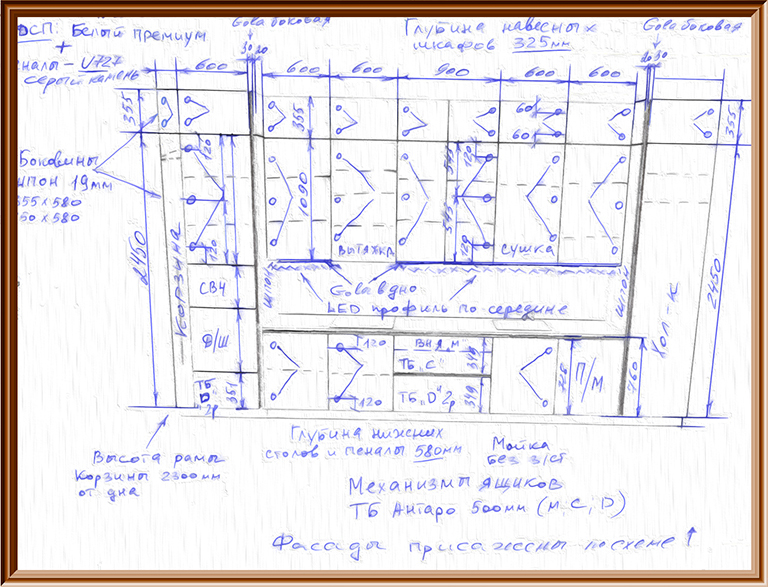 Gola боковая
Глубина навесных
шкафов 325мм
Gola боковая
ДСП: Белый премиум
+
пеналы - U727
серый камень
30 20
20 30
600
600
600
900
600
600
355
355
355
60
60
120
545
120
545
120
120
1090
2450
2450
Боковины
шпон 19мм
355 х 580
50 х 580
Корзина
СВЧ
Д/Ш
ТБ
"D"
2р
351
вытяжка
сушка
шпон
шпон
Хол-к
Gola в дно
LED профиль по середине
120
120
ВН.Я „М"
ТБ „С"
349
ТБ „D" 2р
349
716
П/М
760
Высота рамы
корзины 2300мм
от дна
Глубина нижних
столов и пеналы 580мм
Мойка
без з/ст
Механизмы ящиков
ТБ Антаро 500мм (м, С, D)
Фасады присажены по схеме ↑